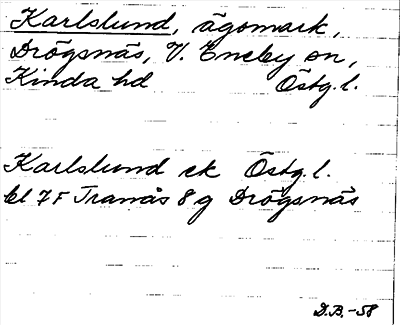 Karlslund, ägomark,
Drögsnäs, V. Eneby sn,
Kinda hd Östg. l.
Karlslund ek Östg. l.
bl 7F Tranås 8 g Drögsnäs
D.B.-58